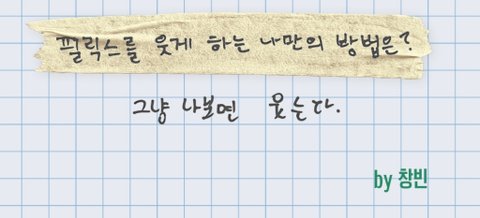 필릭스를 웃게 하는 나만의 방법은?
그냥 나보면 웃는다.
by 창빈